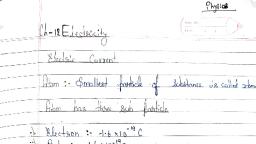 Physics
Ch-12 Electricity
Electric Current
Atom :- Smallest particle of substance is called atom
Atom has three sub particle
Electron :- -1.6 x 10⁻¹⁹ C